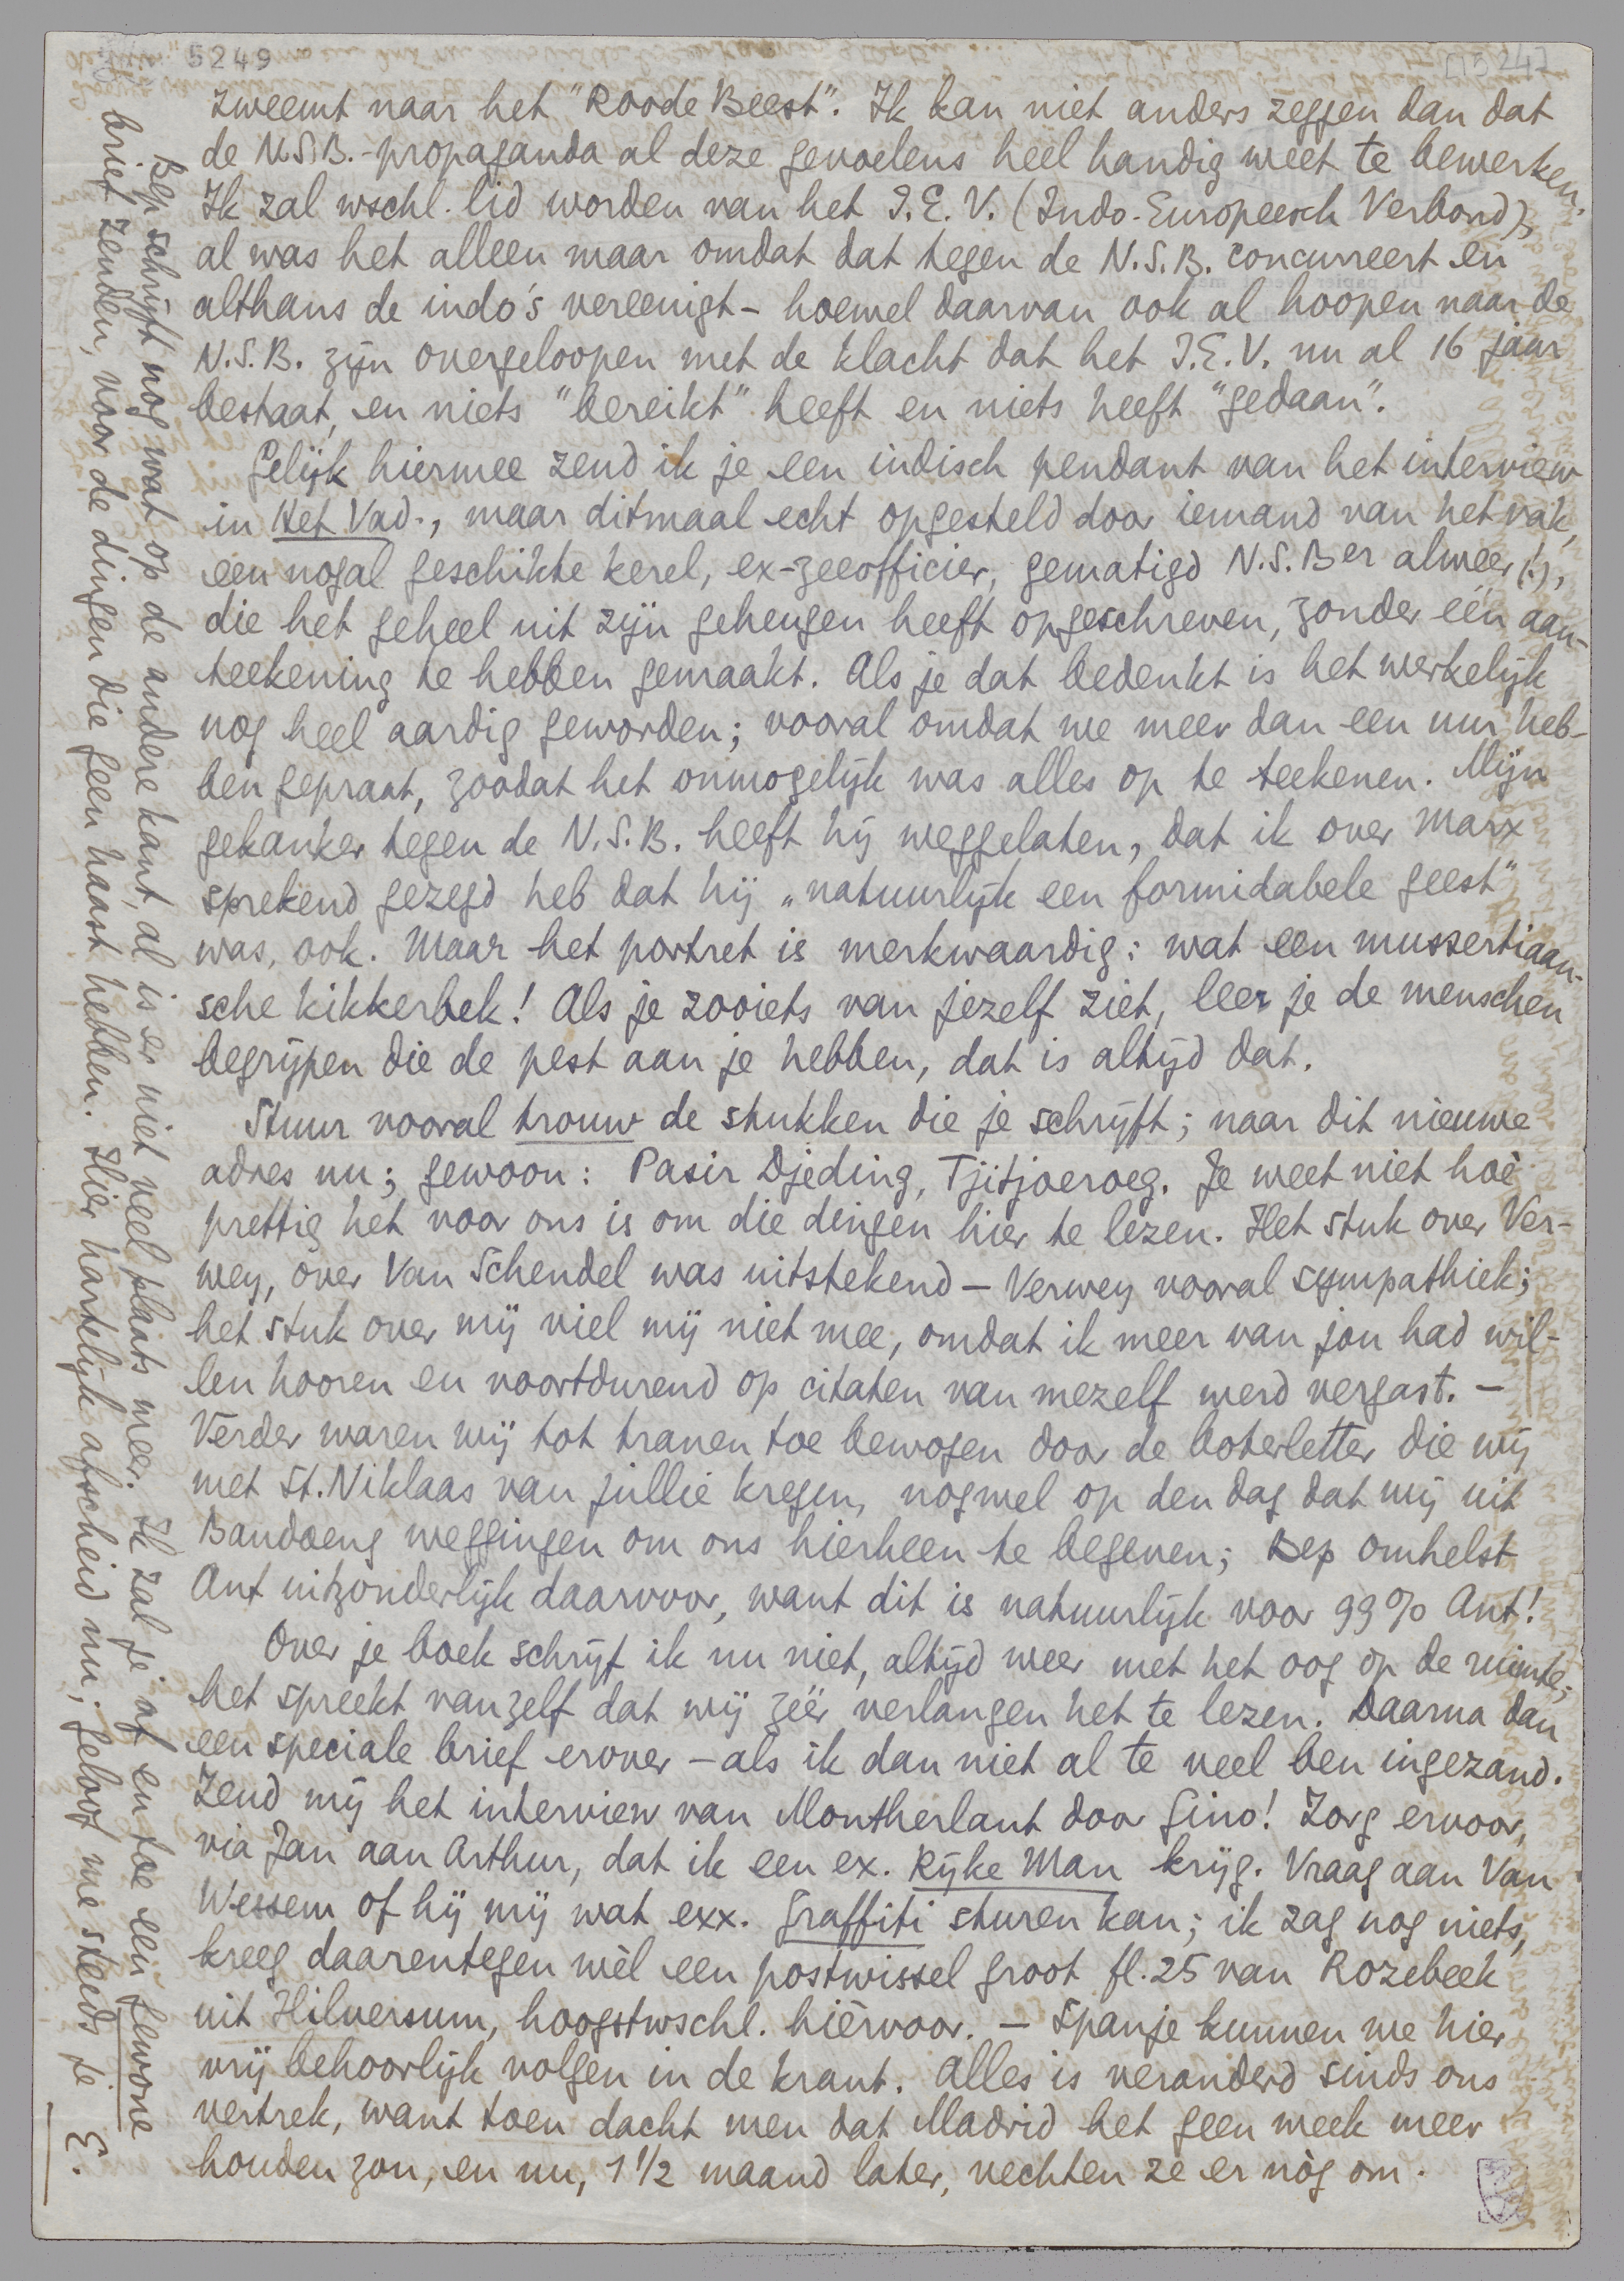 5249
zweemt naar het "Roode Beest". Ik kan niet anders zeggen dan dat
de N.S.B.-propaganda al deze gevoelens heel handig weet te bewerken.
Ik zal wschl. lid worden van het I.E.V. (Indo-Europeesch Verbond),
al was het alleen maar omdat dat tegen de N.S.B. concurreert en
althans de indo's vereenigt - hoewel daarvan ook al hoopen naar de
N.S.B. zijn overgeloopen met de klacht dat het I.E.V. nu al 16 jaar
bestaat, en niets "bereikt" heeft en niets heeft "gedaan".
Gelijk hiermee zend ik je een indisch pendant van het interview
in Het Vad., maar ditmaal echt opgesteld door iemand van het vak,
een nogal geschikte kerel, ex-zeeofficier, gematigd N.S.Ber alweer (!),
die het geheel uit zijn geheugen heeft opgeschreven, zonder één aan-
teekening te hebben gemaakt. Als je dat bedenkt is het werkelijk
nog heel aardig geworden; vooral omdat we meer dan een uur heb-
ben gepraat, zoodat het onmogelijk was alles op te teekenen. Mijn
gekanker tegen de N.S.B. heeft hij weggelaten, dat ik over Marx
sprekend gezegd heb dat hij „natuurlijk een formidabele geest"
was, ook. Maar het portret is merkwaardig: wat een mussertiaan-
sche kikkerbek! Als je zooiets van jezelf ziet, leer je de menschen
begrijpen die de pest aan je hebben, dat is altijd dat.
Stuur vooral trouw de stukken die je schrijft; naar dit nieuwe
adres nu; gewoon: Pasir Djeding, Tjitjoeroeg. Je weet niet hoè
prettig het voor ons is om die dingen hier te lezen. Het stuk over Ver-
wey, over Van Schendel was uitstekend - Verwey vooral sympathiek;
het stuk over mij viel mij niet mee, omdat ik meer van jou had wil-
len hooren en voortdurend op citaten van mezelf werd vergast. -
Verder waren wij tot tranen toe bewogen door de boterletter die wij
met St. Niklaas van jullie kregen, nogwel op den dag dat wij uit
Bandoeng weggingen om ons hierheen te begeven; Bep omhelst
Ant uitzonderlijk daarvoor, want dit is natuurlijk voor 99% Ant!
Over je boek schrijf ik nu niet, altijd weer met het oog op de ruimte;
het spreekt vanzelf dat wij zéér verlangen het te lezen. Daarna dan
een speciale brief erover - als ik dan niet al te veel ben ingezand.
Zend mij het interview van Montherlant door Gino! Zorg ervoor,
via Jan aan Arthur, dat ik een ex. Rijke Man krijg. Vraag aan Van
Wessem of hij mij wat exx. Graffiti sturen kan; ik zag nog niets,
kreeg daarentegen wèl een postwissel groot fl. 25 van Rozebeek
uit Hilversum, hoogstwschl. hiervoor. - Spanje kunnen we hier
vrij behoorlijk volgen in de krant. Alles is veranderd sinds ons
vertrek, want toen dacht men dat Madrid het geen week meer
houden zou, en nu, 1 1/2 maand later, vechten ze er nòg om.
Bep schrijft nog wat op de andere kant, al is er niet veel plaats meer. Ik zal je af en toe een gewone
brief zenden, voor de dingen die geen haast hebben. Hier hartelijk afscheid nu; geloof me steeds je E.